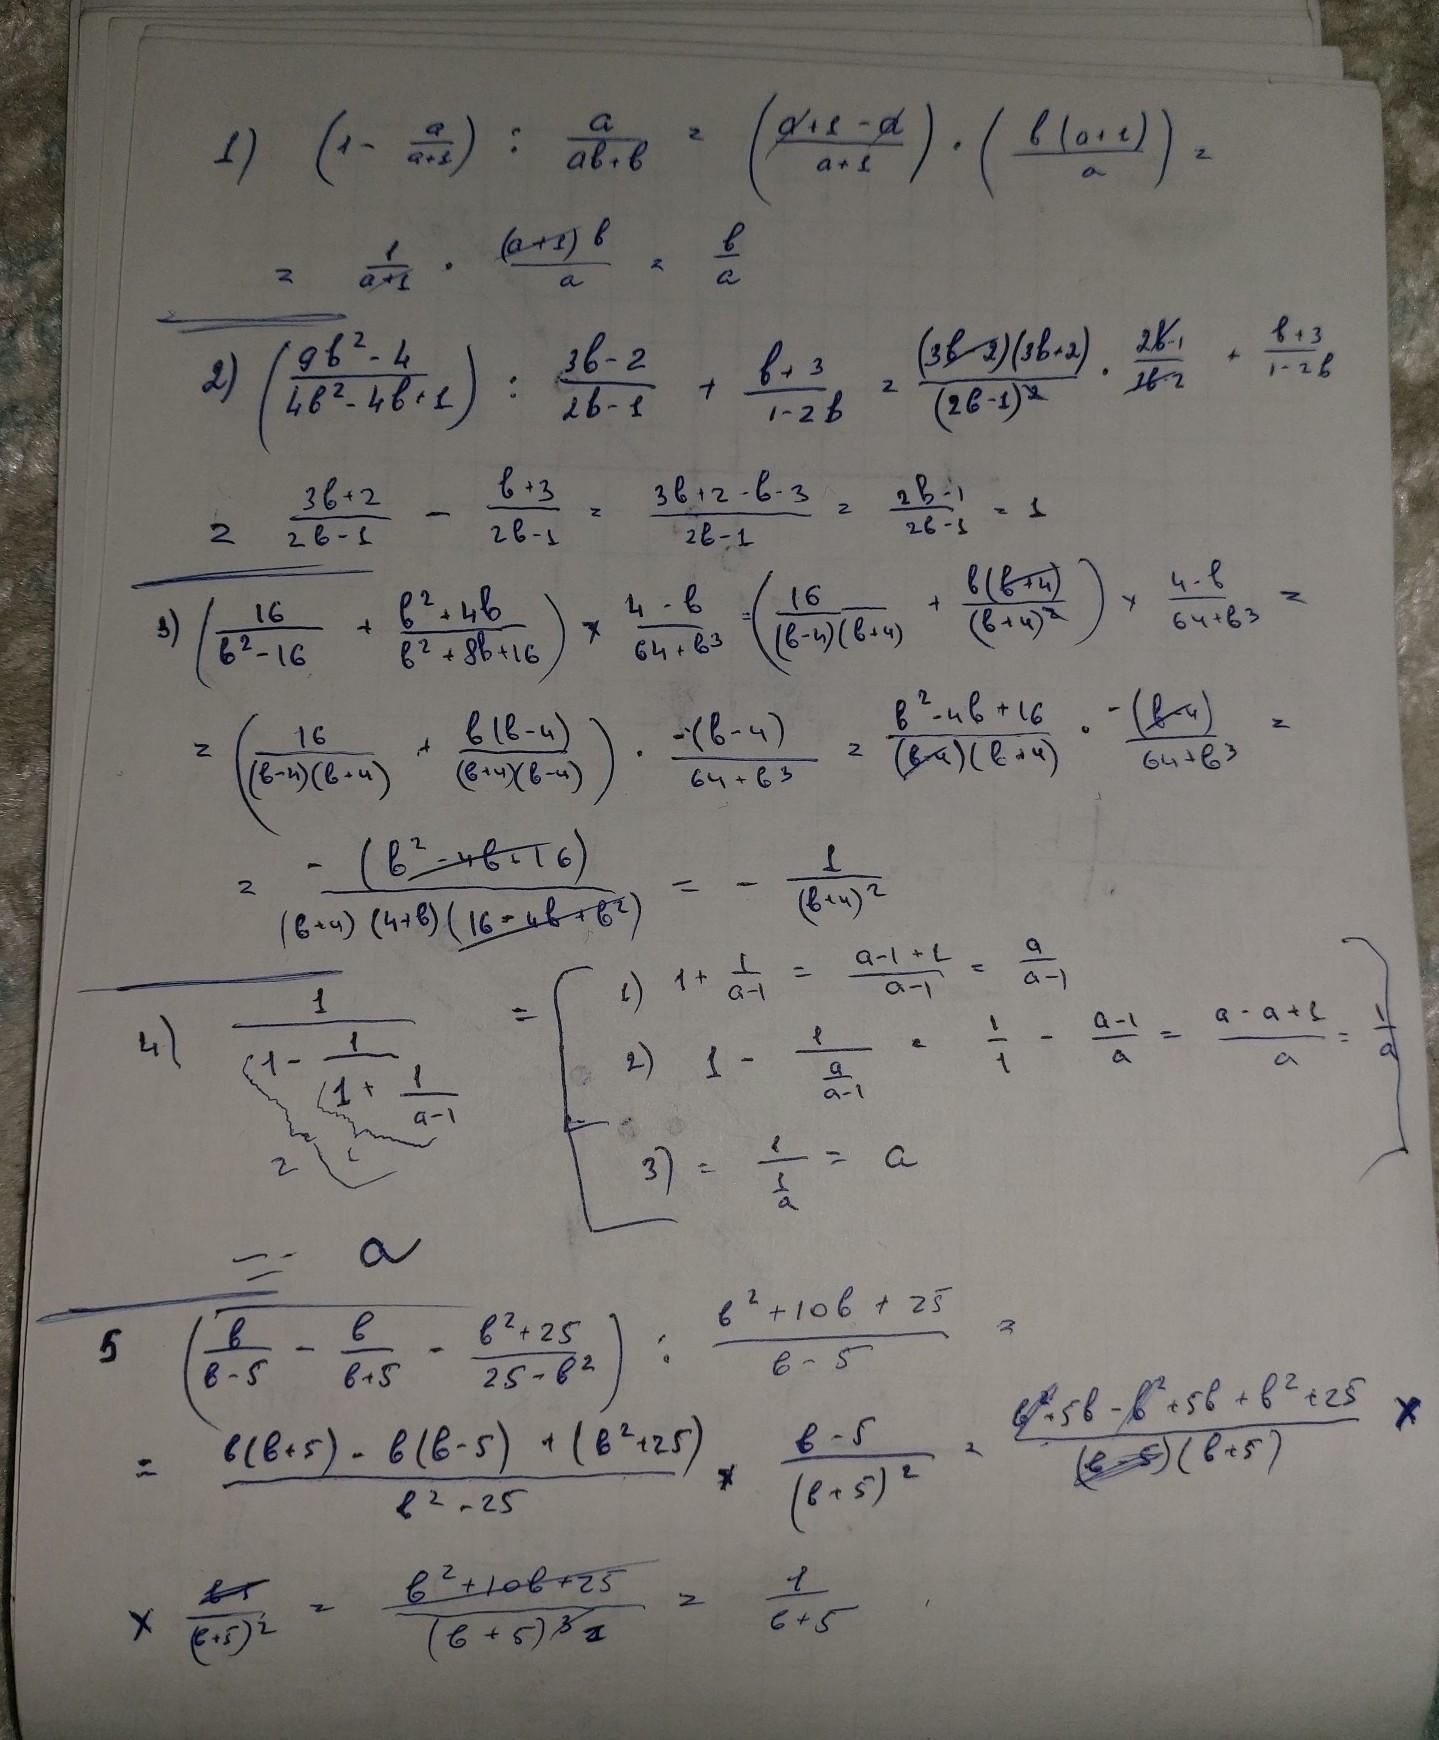 1) (1 - a/(a+1)) : a/(ab+b) = ((a+1-a)/(a+1)) · (b(a+1)/a) =
= 1/(a+1) · (a+1)b/a = b/a
2) ((9b²-4)/(4b²-4b+1)) : (3b-2)/(2b-1) + (b+3)/(1-2b) = (3b-2)(3b+2)/(2b-1)² · (2b-1)/(3b-2) + (b+3)/(1-2b)
= (3b+2)/(2b-1) - (b+3)/(2b-1) = (3b+2-b-3)/(2b-1) = (2b-1)/(2b-1) = 1
3) (16/(b²-16) + (b²+4b)/(b²+8b+16)) × (4-b)/(64+b³) = (16/((b-4)(b+4)) + b(b+4)/(b+4)²) × (4-b)/(64+b³) =
= (16/((b-4)(b+4)) + b(b-4)/((b+4)(b-4))) · -(b-4)/(64+b³) = (b²-4b+16)/((b-4)(b+4)) · -(b-4)/(64+b³) =
= -(b²-4b+16)/((b+4)(4+b)(16-4b+b²)) = - 1/(b+4)²
4) 1/(1 - 1/(1 + 1/(a-1))) =
1) 1 + 1/(a-1) = (a-1+1)/(a-1) = a/(a-1)
2) 1 - 1/(a/(a-1)) = 1/1 - (a-1)/a = (a-a+1)/a = 1/a
3) = 1/(1/a) = a
2 1
= a
5 (b/(b-5) - b/(b+5) - (b²+25)/(25-b²)) : (b²+10b+25)/(b-5) =
= (b(b+5) - b(b-5) + (b²+25))/(b²-25) × (b-5)/(b+5)² = (b²+5b-b²+5b+b²+25)/((b-5)(b+5)) ×
× (b-5)/(b+5)² = (b²+10b+25)/(b+5)³ = 1/(b+5)